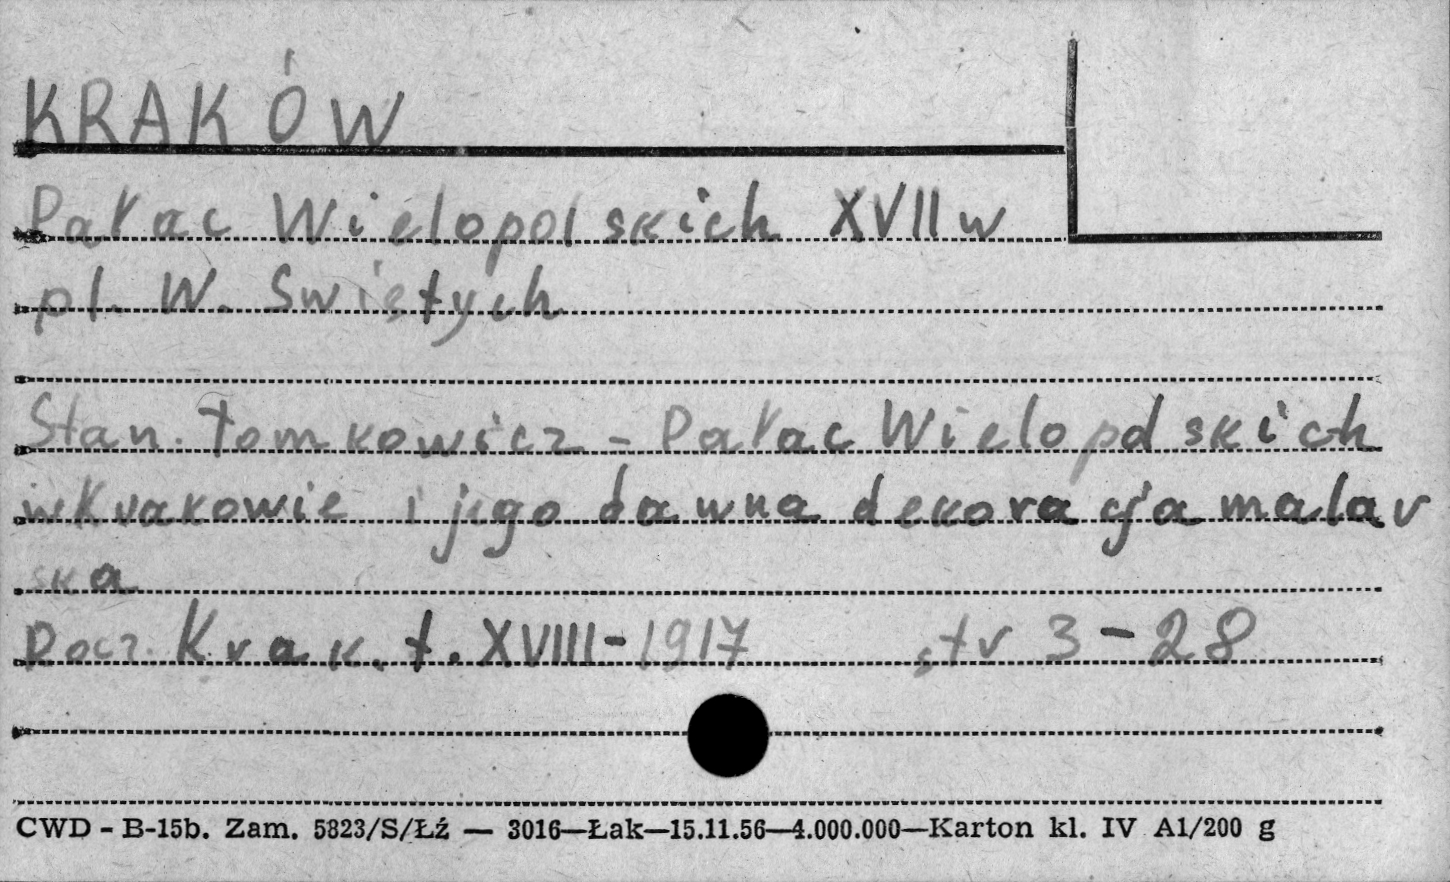 KRAKÓW
Pałac Wielopolskich XVII w
pl. W. Świętych
Stan. Tomkowicz - Pałac Wielopolskich
w Krakowie i jego dawna dekoracja malar
ska
Rocz. Krak. t. XVIII - 1917 str 3 - 28
CWD - B-15b. Zam. 5823/S/Łź — 3016—Łak—15.11.56—4.000.000—Karton kl. IV A1/200 g